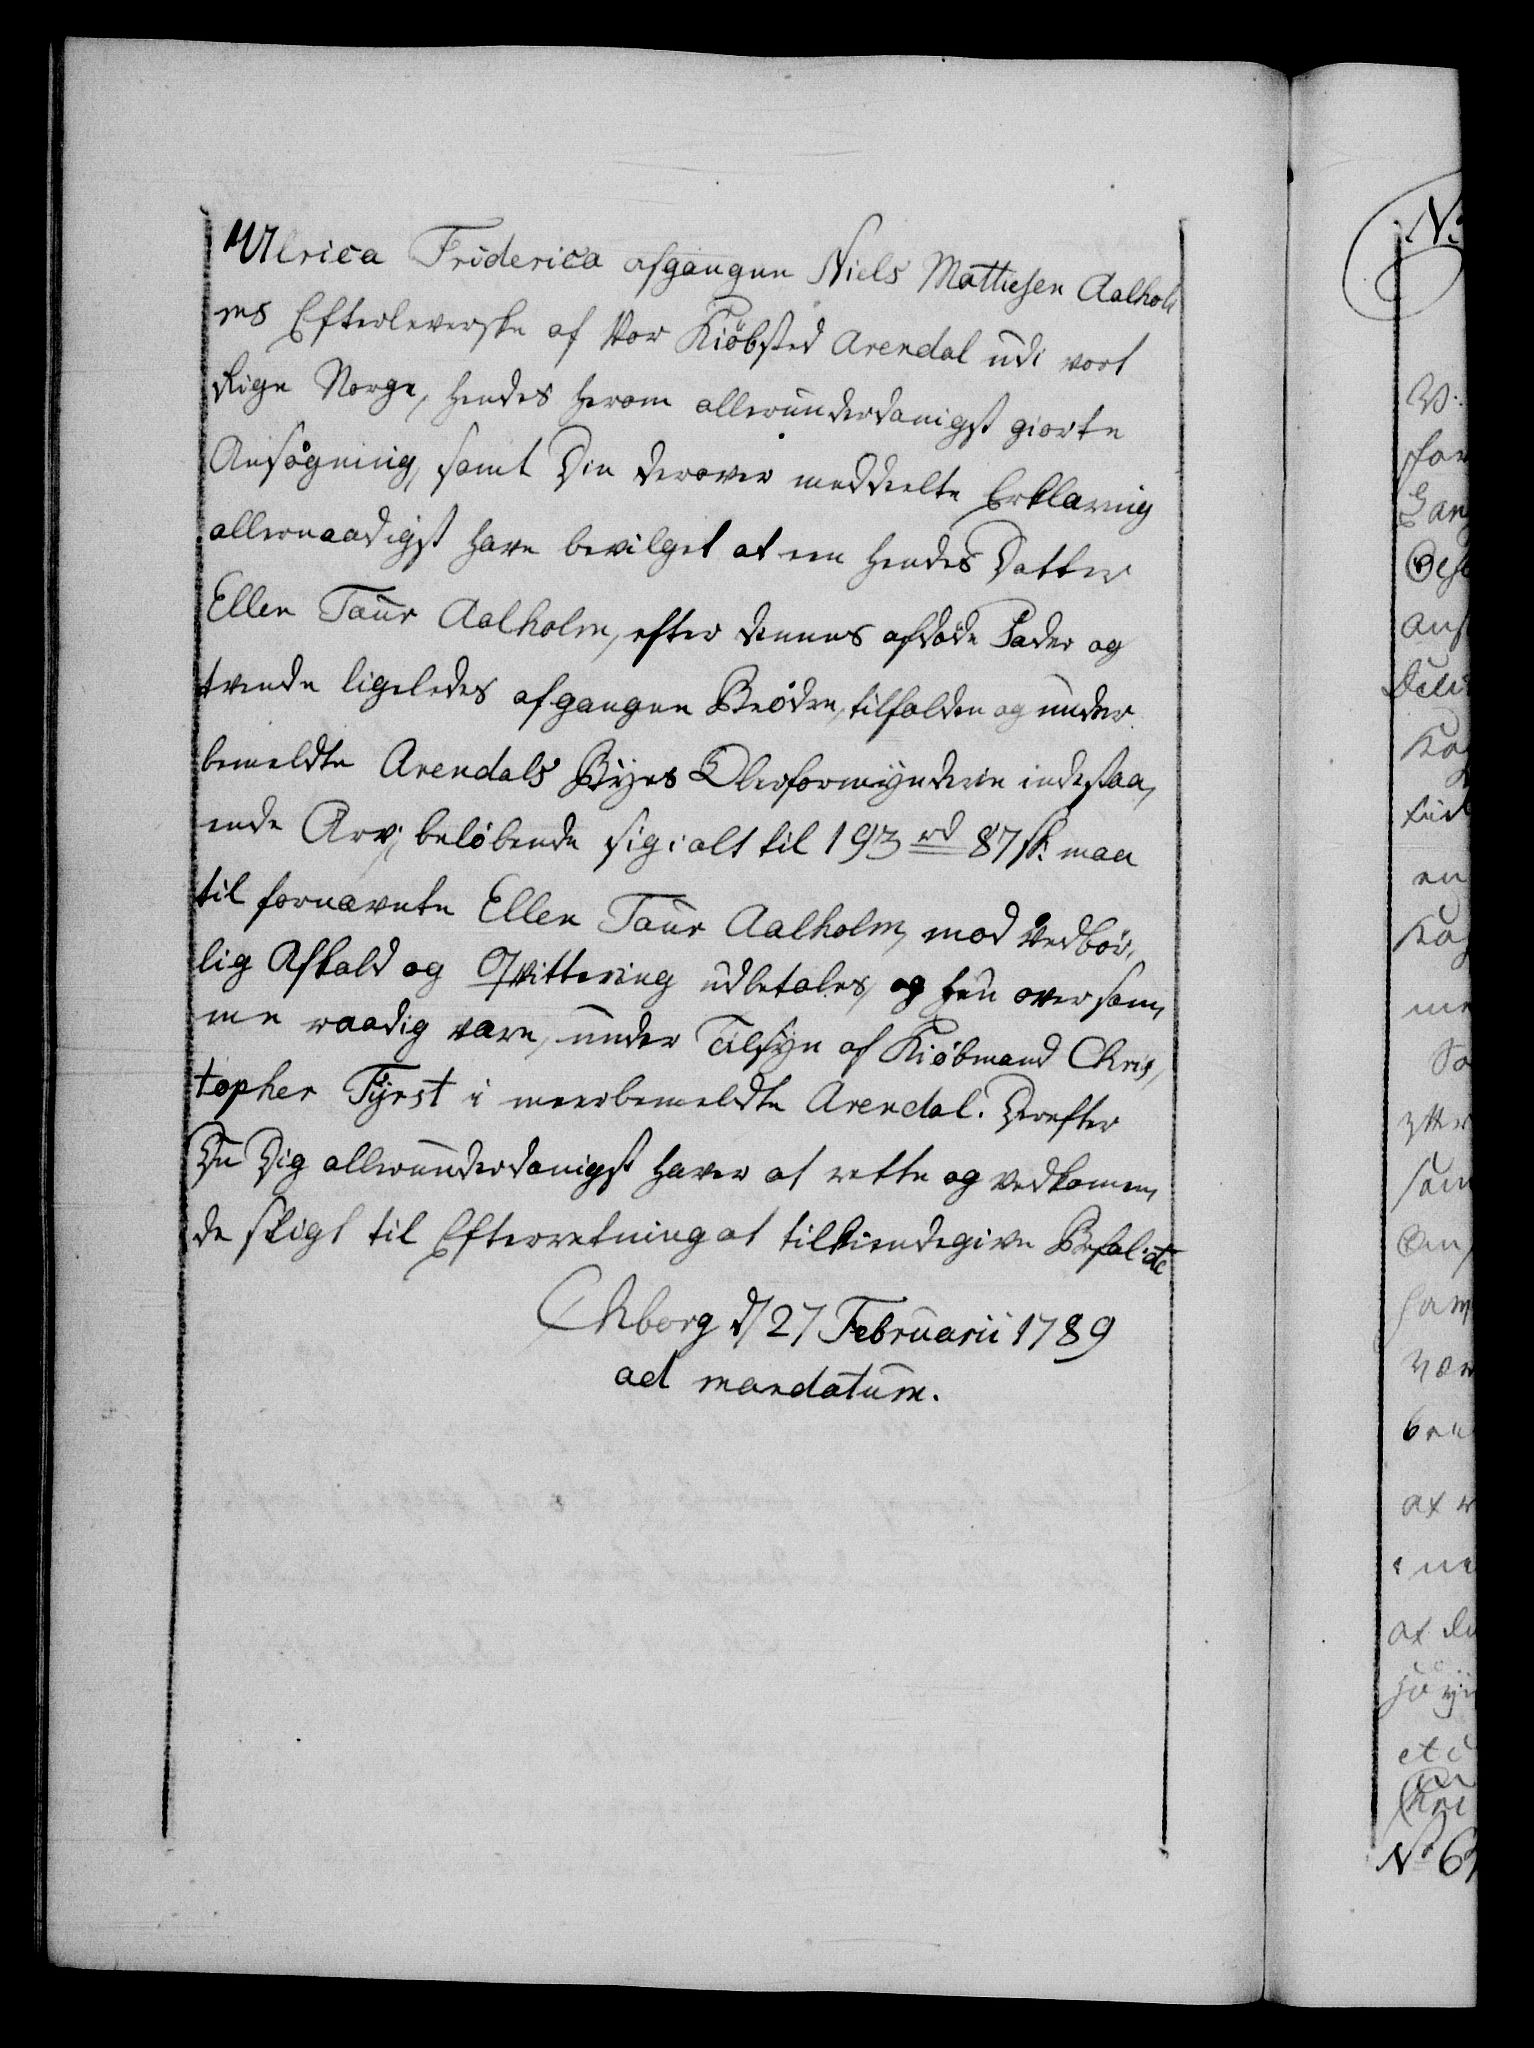 Ulrica Friderica afgangen Niels Mathiesen Aalhol
ms Efterleverske af Vor Kiöbsted Arendal udi vort
Rige Norge, hendes herom allerunderdanigst giorte
Ansøgning, samt Din derover meddeelte Erklæring
allernaadigst have bevilget at een hendes Datter
Ellen Taur Aalholm, efter dennes afdøde Fader og
tvende ligeledes afgangne Brødre, tilfalden og under
bemeldte Arendals Byes Overformynderie indestaa,
ende Arv, beløbende sig i alt til 193 rd 87 sk: maa
til fornævnte Ellen Taur Aalholm, mod Vedbør,
lig Afkald og Qvittering udbetales, og hun over sam,
me raadig være, under Tilsyn af Kiöbmand Chris,
topher Fyrst i meerbemeldte Arendal. Derefter
Du Dig allerunderdanigst haver at rette og vedkommen,
de sligt til Efterretning at tilkiendegive Befal: etc
Chborg d/ 27 Februarii 1789
ad mandatum.